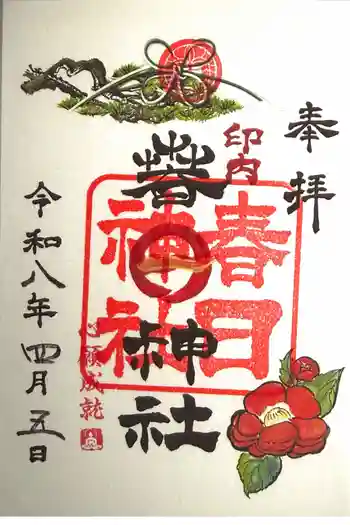 奉拝
印内
萅
神社
春日
神社
心願成就
令和八年四月五日